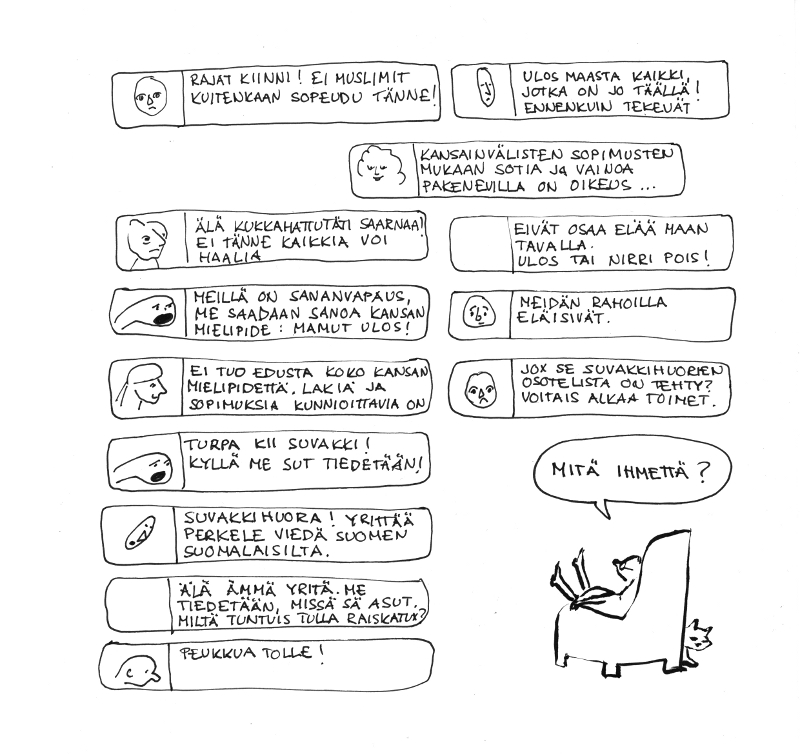 RAJAT KIINNI! EI MUSLIMIT
KUITENKAAN SOPEUDU TÄNNE!
ULOS MAASTA KAIKKI,
JOTKA ON JO TÄÄLLÄ!
ENNENKUIN TEKEVÄT
KANSAINVÄLISTEN SOPIMUSTEN
MUKAAN SOTIA JA VAINOA
PAKENEVILLA ON OIKEUS ...
ÄLÄ KUKKAHATTUTÄTI SAARNAA!
EI TÄNNE KAIKKIA VOI
HAALIA
EIVÄT OSAA ELÄÄ MAAN
TAVALLA.
ULOS TAI NIRRI POIS!
MEILLÄ ON SANANVAPAUS,
ME SAADAAN SANOA KANSAN
MIELIPIDE: MAMUT ULOS!
MEIDÄN RAHOILLA
ELÄISIVÄT.
EI TUO EDUSTA KOKO KANSAN
MIELIPIDETTÄ. LAKIA JA
SOPIMUKSIA KUNNIOITTAVIA ON
JOX SE SUVAKKIHUORIEN
OSOTELISTA ON TEHTY?
VOITAIS ALKAA TOIMET.
TURPA KII SUVAKKI!
KYLLÄ ME SUT TIEDETÄÄN!
MITÄ IHMETTÄ?
SUVAKKIHUORA! YRITTÄÄ
PERKELE VIEDÄ SUOMEN
SUOMALAISILTA.
ÄLÄ ÄMMÄ YRITÄ. ME
TIEDETÄÄN, MISSÄ SÄ ASUT.
MILTÄ TUNTUIS TULLA RAISKATUX?
PEUKKUA TOLLE!